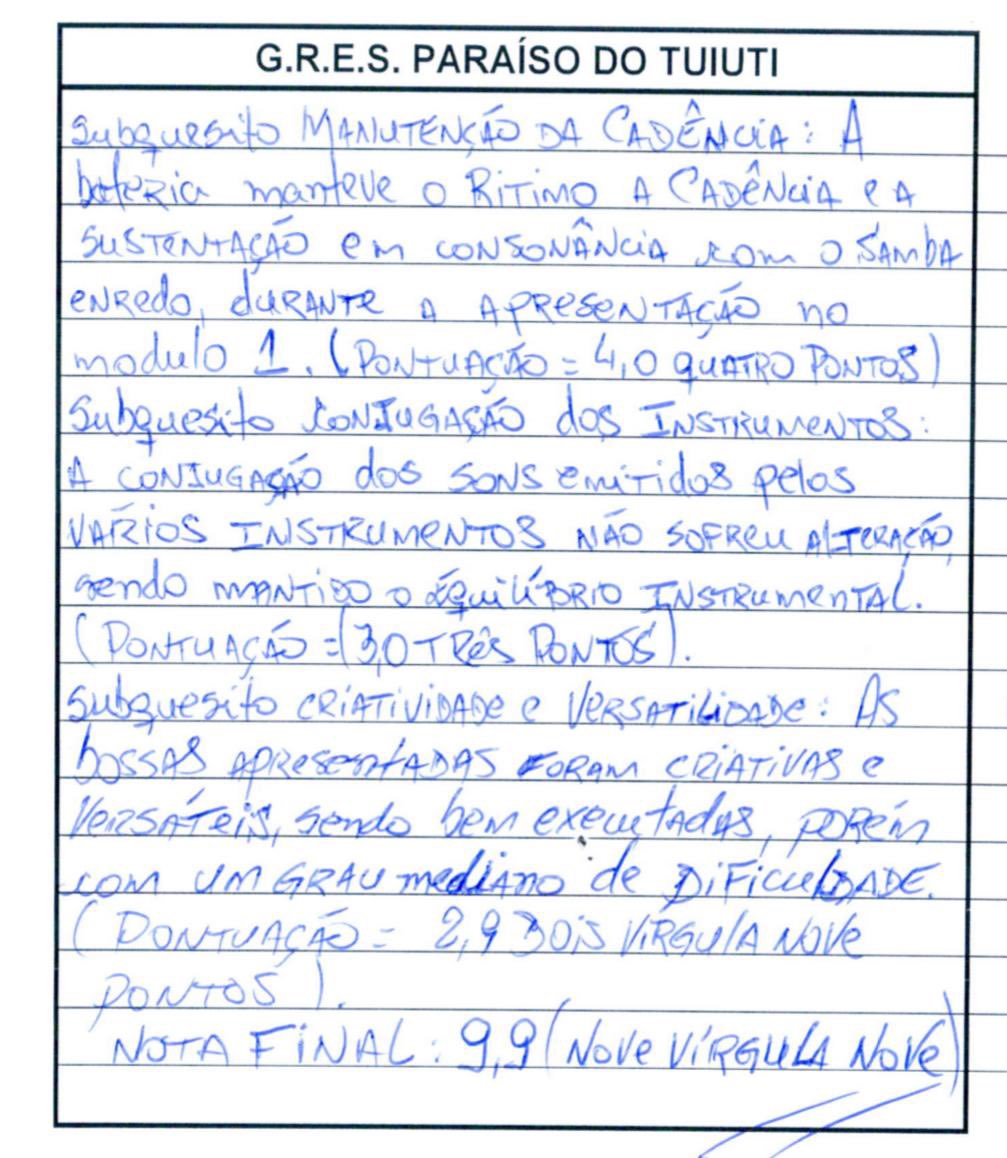 G.R.E.S. PARAÍSO DO TUIUTI
Subquesito MANUTENÇÃO DA CADÊNCIA: A
bateria manteve o RITIMO A CADÊNCIA e A
SUSTENTAÇÃO em CONSONÂNCIA com o SAMBA
ENREDO, dURANTE A APRESENTAÇÃO no
modulo 1. (PONTUAÇÃO = 4,0 QUATRO PONTOS)
Subquesito CONJUGAÇÃO dos INSTRUMENTOS:
A CONJUGAÇÃO dos SONS emiTidos pelos
VÁRIOS INSTRUMENTOS NÃO SOFREU ALTERAÇÃO,
sendo MANTIDO o EQUILÍBRIO INSTRUMENTAL.
(PONTUAÇÃO = (3,0 TRÊS PONTOS).
Subquesito CRIATIVIDADE e VERSATILIDADE: AS
bOSSAS APRESENTADAS FORAM CRIATIVAS e
VERSÁTEIS, sendo bem executadas, PORÉM
COM UM GRAU mediano de DIFICULDADE.
(PONTUAÇÃO = 2,9 DOIS VIRGULA NOVE
PONTOS).
NOTA FINAL: 9,9 (NOVE VÍRGULA NOVE)